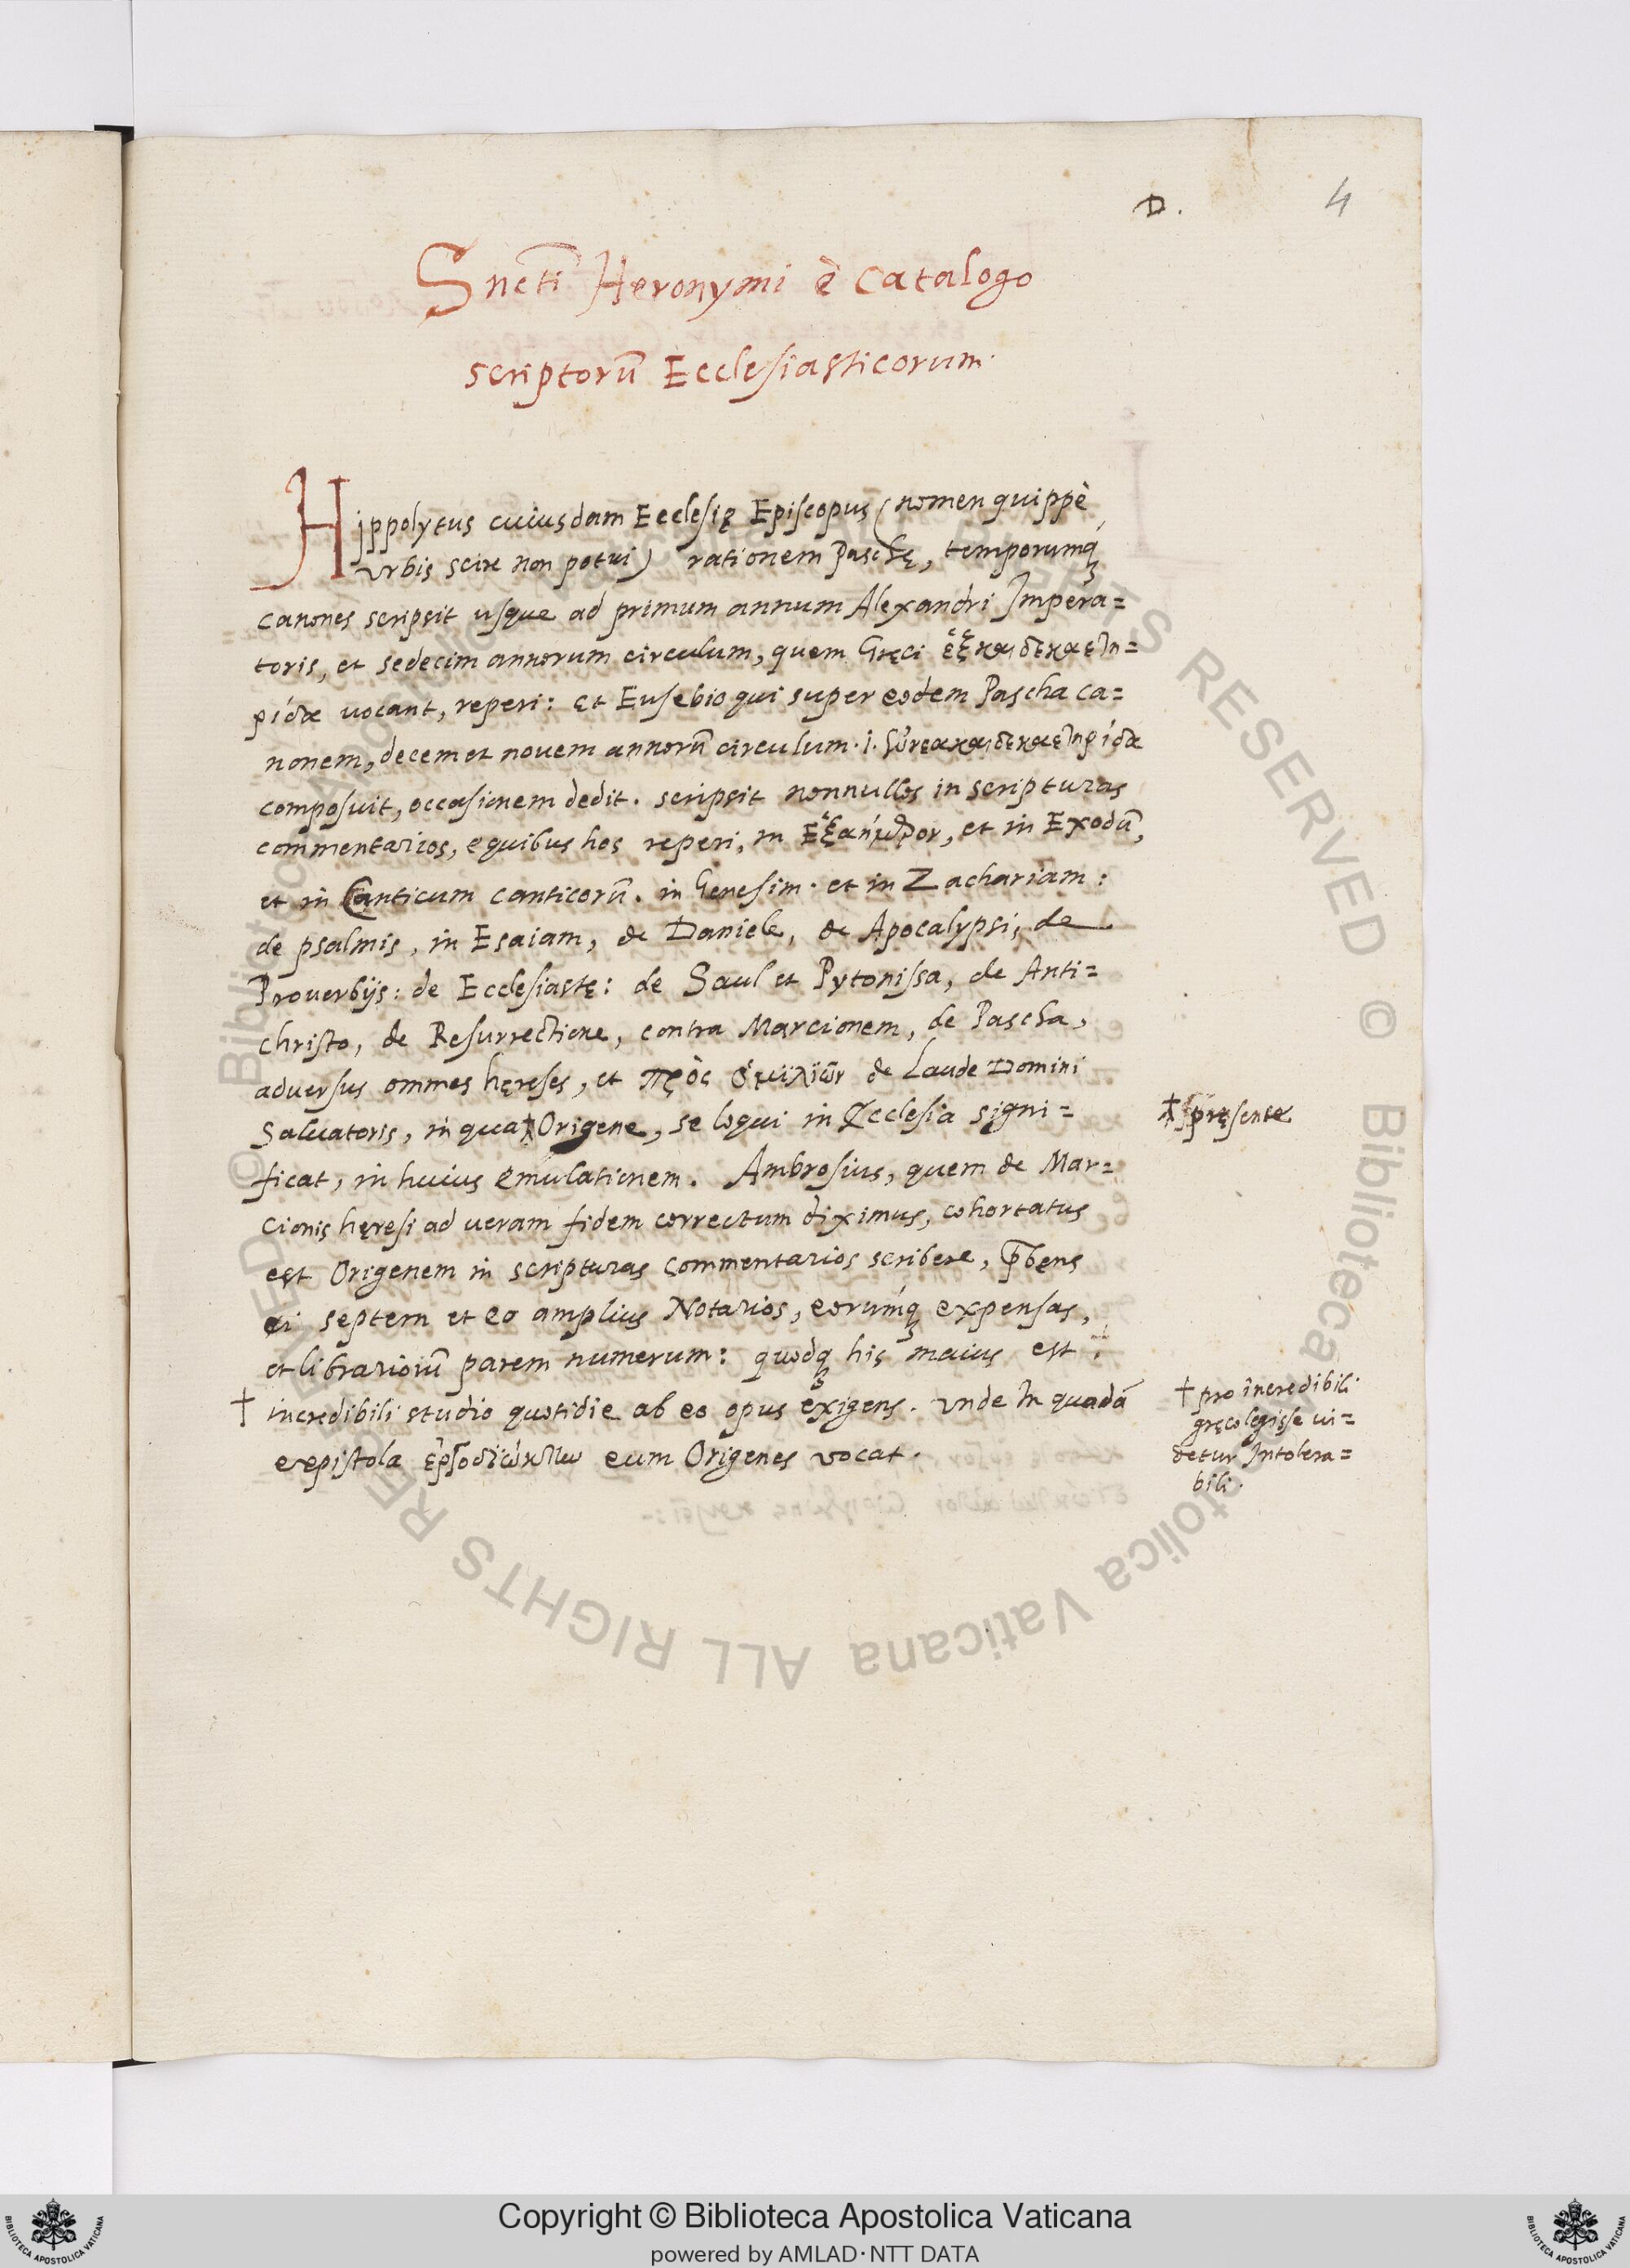 D. 4
Sncti Hieronymi è Catalogo
scriptorũ Ecclesiasticorum.
Hippolytus cuiusdam Ecclesię Episcopus (nomen quippè
vrbis scire non potui) rationem Paschę, temporumq3
canones scripsit usque ad primum annum Alexandri Impera=
toris, et sedecim annorum circulum, quem Gręci ἑξκαιδεκαετη=
ρίδα uocant, reperi: et Eusebio qui super eodem Pascha ca=
nonem, decem et nouem annorũ circulum .i. ἐννεακαιδεκαετηρίδα
composuit, occasionem dedit. scripsit nonnullos in scripturas
commentarios, e quibus hos reperi, in Ἑξαήμερον, et in Exodũ,
et in Canticum canticorũ. in Genesim. et in Zachariam:
de psalmis, in Esaiam, de Daniele, de Apocalypsi, de
Prouerbijs: de Ecclesiastę: de Saul et Pytonissa, de Anti=
christo, de Resurrectione, contra Marcionem, de Pascha,
aduersus ommes hęreses, et πρὸς ὁμιλιῶν de Laude Domini
Saluatoris, in qua ☨ Origene, se loqui in Ecclesia signi=
☨ pręsente
ficat, in huius emulationem. Ambrosius, quem de Mar=
cionis hęresi ad ueram fidem correctum diximus, cohortatus
est Origenem in scripturas commentarios scribere, p̃bens
ei septem et eo amplius Notarios, eorumq3 expensas,
et librariorũ parem numerum: quodq3 his maius est,
† incredibili studio quotidie ab eo opus exigens. vnde in quadã
† pro incredibili
gręco legisse ui=
detur Intolera=
bili.
epistola ἐργοδιώκτην eum Origenes vocat.
© Biblioteca Apostolica Vaticana ALL RIGHTS RESERVED
Copyright © Biblioteca Apostolica Vaticana
powered by AMLAD·NTT DATA
BIBLIOTECA APOSTOLICA VATICANA
BIBLIOTECA APOSTOLICA VATICANA